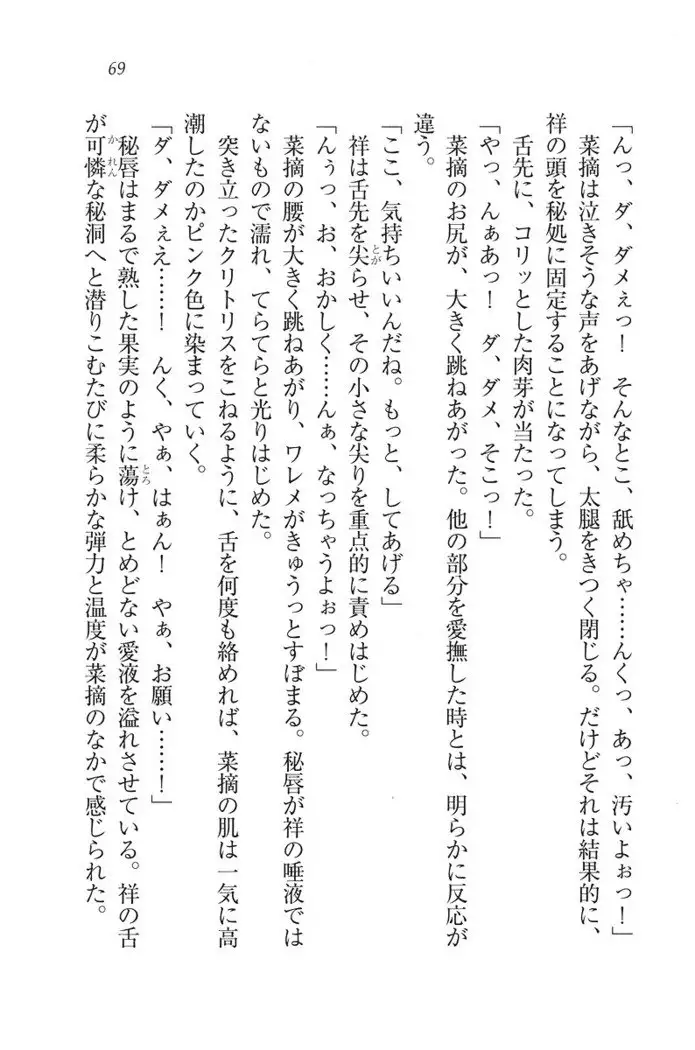 69
「んっ、ダ、ダメぇっ！　そんなとこ、舐めちゃ……んくっ、あっ、汚いよぉっ！」
菜摘は泣きそうな声をあげながら、太腿をきつく閉じる。だけどそれは結果的に、
祥の頭を秘処に固定することになってしまう。
舌先に、コリッとした肉芽が当たった。
「やっ、んぁあっ！　ダ、ダメ、そこっ！」
菜摘のお尻が、大きく跳ねあがった。他の部分を愛撫した時とは、明らかに反応が
違う。
「ここ、気持ちいいんだね。もっと、してあげる」
祥は舌先を尖らせ、その小さな尖りを重点的に責めはじめた。
「んぅっ、お、おかしく……んぁ、なっちゃうよぉっ！」
菜摘の腰が大きく跳ねあがり、ワレメがきゅうっとすぼまる。秘唇が祥の唾液では
ないもので濡れ、てらてらと光りはじめた。
突き立ったクリトリスをこねるように、舌を何度も絡めれば、菜摘の肌は一気に高
潮したのかピンク色に染まっていく。
「ダ、ダメぇえ……！　んく、やぁ、はぁん！　やぁ、お願い……！」
秘唇はまるで熟した果実のように蕩け、とめどない愛液を溢れさせている。祥の舌
が可憐な秘洞へと潜りこむたびに柔らかな弾力と温度が菜摘のなかで感じられた。